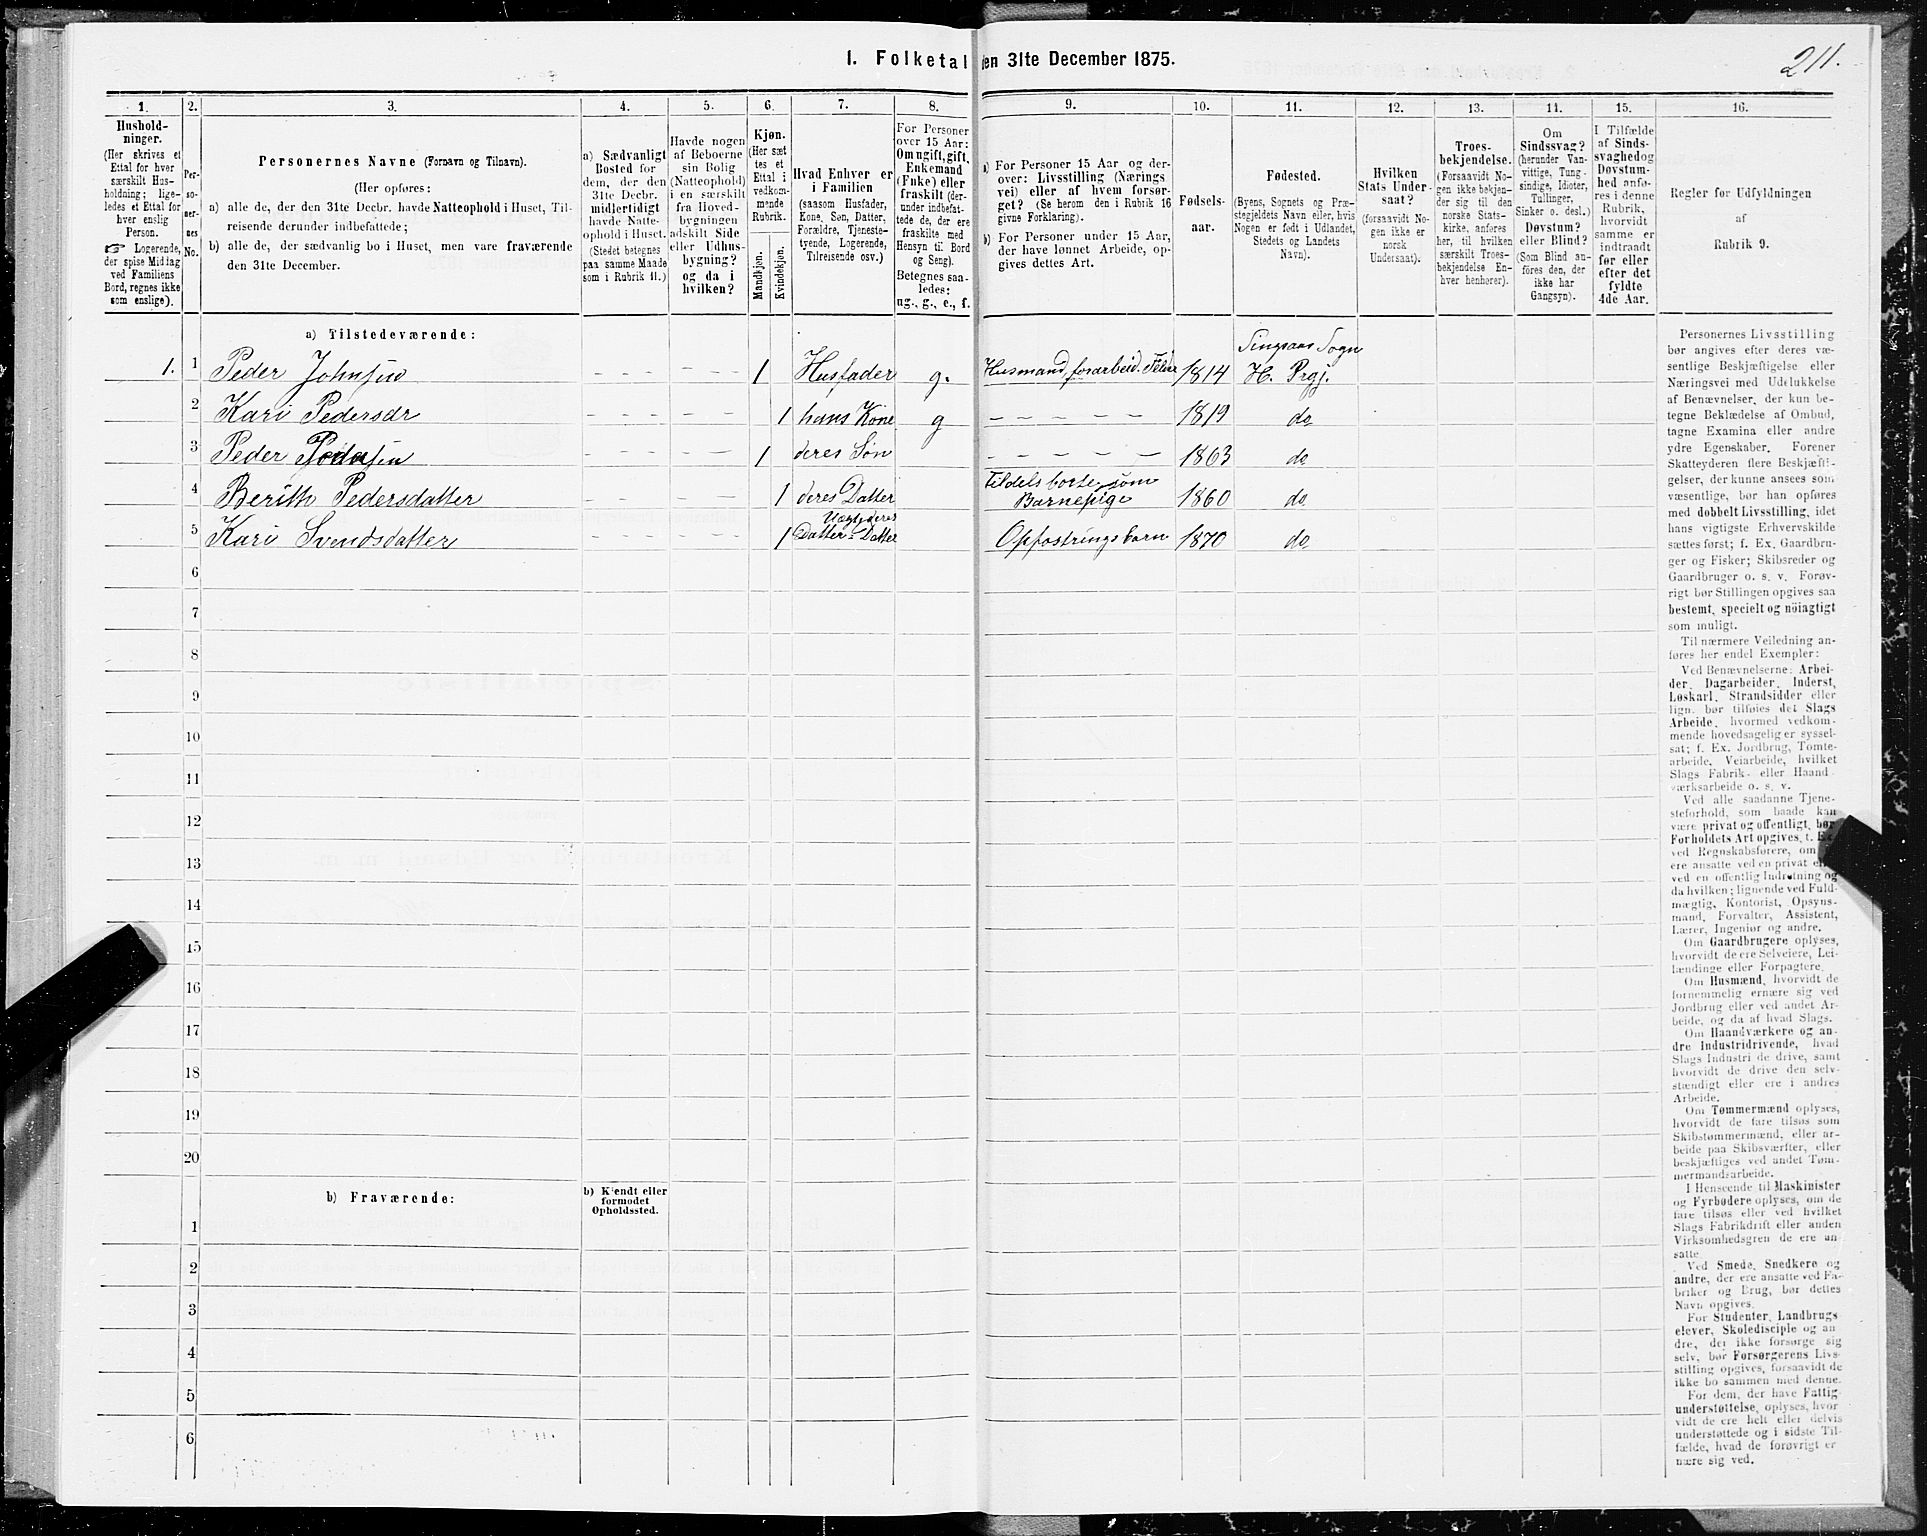 1. Folketal den 31te December 1875.
211.
1.
2.
3.
4.
5.
6.
7.
8.
9.
10.
11.
12.
13.
14.
15.
16.
Hushold-
ninger.
(Her skrives et
Ettal for hver
særskilt Hus-
holdning; lige-
ledes et Ettal for
hver enslig
Person.
☞ Logerende,
der spise Middag
ved Familiens
Bord, regnes ikke
som enslige).
Per-
so-
ner-
nes
No.
Personernes Navne (Fornavn og Tilnavn).
(Her opføres:
a) alle de, der den 31te Decbr. havde Natteophold i Huset, Til-
reisende derunder indbefattede;
b) alle de, der sædvanlig bo i Huset, men vare fraværende
den 31te December.
a) Sædvanligt
Bosted for
dem, der den
31te Decbr.
midlertidigt
havde Natte-
ophold i Huset.
(Stedet betegnes
paa samme Maade
som i Rubrik 11.)
Havde nogen
af Beboerne
sin Bolig
(Natteophold)
i en særskilt
fra Hoved-
bygningen
adskilt Side
eller Udhus-
bygning?
og da i
hvilken?
Kjøn.
(Her sæt
tes et
Ettal i
vedkom-
mende
Rubrik.
Mandkjøn.
Kvindekjøn.
Hvad Enhver er
i Familien
(saasom Husfader,
Kone, Søn, Datter,
Forældre, Tjeneste-
tyende, Logerende,
Tilreisende osv.)
For Personer
over 15 Aar:
Om ugift, gift,
Enkemand
(Enke) eller
fraskilt (der-
under indbefat-
tede de, der ere
fraskilte med
Hensyn til Bord
og Seng).
Betegnes saa-
ledes:
ug., g., e., f.
a) For Personer 15 Aar og der-
over: Livsstilling (Nærings
vei) eller af hvem forsør-
get? (Se herom den i Rubrik 16
givne Forklaring).
b) For Personer under 15 Aar,
der have lønnet Arbeide, op-
gives dettes Art.
Fødsels-
aar.
Fødested.
(Byens, Sognets og Præ-
stegjeldets Navn eller, hvis
Nogen er født i Udlandet,
Stedets og Landets
Navn).
Hvilken
Stats Under-
saat?
(forsaavidt No-
gen ikke er
norsk
Undersaat).
Troes-
bekjendelse.
(Forsaavidt No-
gen ikke bekjen-
der sig til den
norske Stats-
kirke, anføres
her, til hvilken
særskilt Troes-
bekjendelse En-
hver henhører).
Om
Sindssvag?
(herunder Van-
vittige, Tung-
sindige, Idioter,
Tullinger,
Sinker o. desl.)
Døvstum?
eller Blind?
(Som Blind an-
føres den, der
ikke har
Gangsyn).
I Tilfælde
af Sinds-
svaghed og
Døvstum-
hed anfø-
res i denne
Rubrik,
hvorvidt
samme er
indtraadt
før eller
efter det
fyldte
4de Aar.
Regler for Udfyldningen
af
Rubrik 9.
a) Tilstedeværende:
1. 1 Peder Johnsen 1 Husfader g. Husmand, forarbeid. 1814 Singsaas Sogn
H. Prgj.
2 Kari Pedersdr 1 hans Kone g 1819 do
3 Peder Pedersen 1 deres Søn 1863 do
4 Berith Pedersdatter 1 deres Datter Tildels borte som
Barnepige 1860 do
5 Kari Svendsdatter 1 Uægte deres
Datter-Datter Opfostringsbarn 1870 do
6
7
8
9
10
11
12
13
14
15
16
17
18
19
20
b) Fraværende:
b) Kjendt eller
formodet
Opholdssted.
1
2
3
4
5
6
Personernes Livsstilling
bør angives efter deres væ-
sentlige Beskjæftigelse eller
Næringsvei med Udelukkelse
af Benævnelser, der kun be-
tegne Beklædelse af Ombud,
tagne Examina eller andre
ydre Egenskaber. Forener
Skatteyderen flere Beskjæfti-
gelser, der kunne ansees som
væsentlige, bør han opføres
med dobbelt Livsstilling, idet
hans vigtigste Erhvervskilde
sættes først; f. Ex. Gaardbru-
ger og Fisker; Skibsreder og
Gaardbruger o. s. v. Forøv-
rigt bør Stillingen opgives saa
bestemt, specielt og nøiagtigt
som muligt.
Til nærmere Veiledning an-
føres her endel Exempler:
Ved Benævnelserne: Arbei-
der, Dagarbeider, Inderst,
Løskarl, Strandsidder eller
lign. bør tilføies det Slags
Arbeide, hvormed vedkom-
mende hovedsagelig er syssel-
sat; f. Ex. Jordbrug, Tomte-
arbeide, Veiarbeide, hvilket
Slags Fabrik- eller Haand-
værksarbeide o. s. v.
Ved alle saadanne Tjene-
steforhold, som baade kan
være privat og offentligt, bør
Forholdets Art opgives, t. Ex.
ved Regnskabsførere, om
ere ansatte ved en privat
ved en offentlig Indretning og
da hvilken; lignende ved Fuld-
mægtig, Kontorist, Opsyns-
mand, Forvalter, Assistent,
Lærer, Ingeniør og andre.
Om Gaardbrugere oplyses,
hvorvidt de ere Selveiere, Lei-
lændinge eller Forpagtere.
Om Husmænd, hvorvidt de
fornemmelig ernære sig ved
Jordbrug eller ved andet Ar-
beide, og da af hvad Slags.
Om Haandværkere og an-
dre Industridrivende, hvad
Slags Industri de drive, samt
hvorvidt de drive den selv-
stændigt eller ere i andres
Arbeide.
Om Tømmermænd oplyses,
hvorvidt de fare tilsøs som
Skibstømmermænd, eller ar-
beide paa Skibsværfter, eller
beskjæftiges ved andet Tøm-
mermandsarbeide.
I Henseende til Maskinister
og Fyrbødere oplyses, om de
fare tilsøs eller ved hvilket
Slags Fabrikdrift eller anden
Virksomhedsgren de ere an-
satte.
Ved Smede, Snedkere og
andre, der ere ansatte ved Fa-
briker og Brug, bør dettes
Navn opgives.
For Studenter, Landbrugs-
elever, Skoledisciple og an-
dre, der ikke forsørge sig
selv, bør Forsørgerens Livs-
stilling opgives, forsaavidt de
ikke bo sammen med denne.
For dem, der have Fattig-
understøttelse, oplyses, hvor
vidt de ere helt eller delvis
understøttede og i sidste Til-
fælde, hvad de forøvrigt er
nære sig ved.